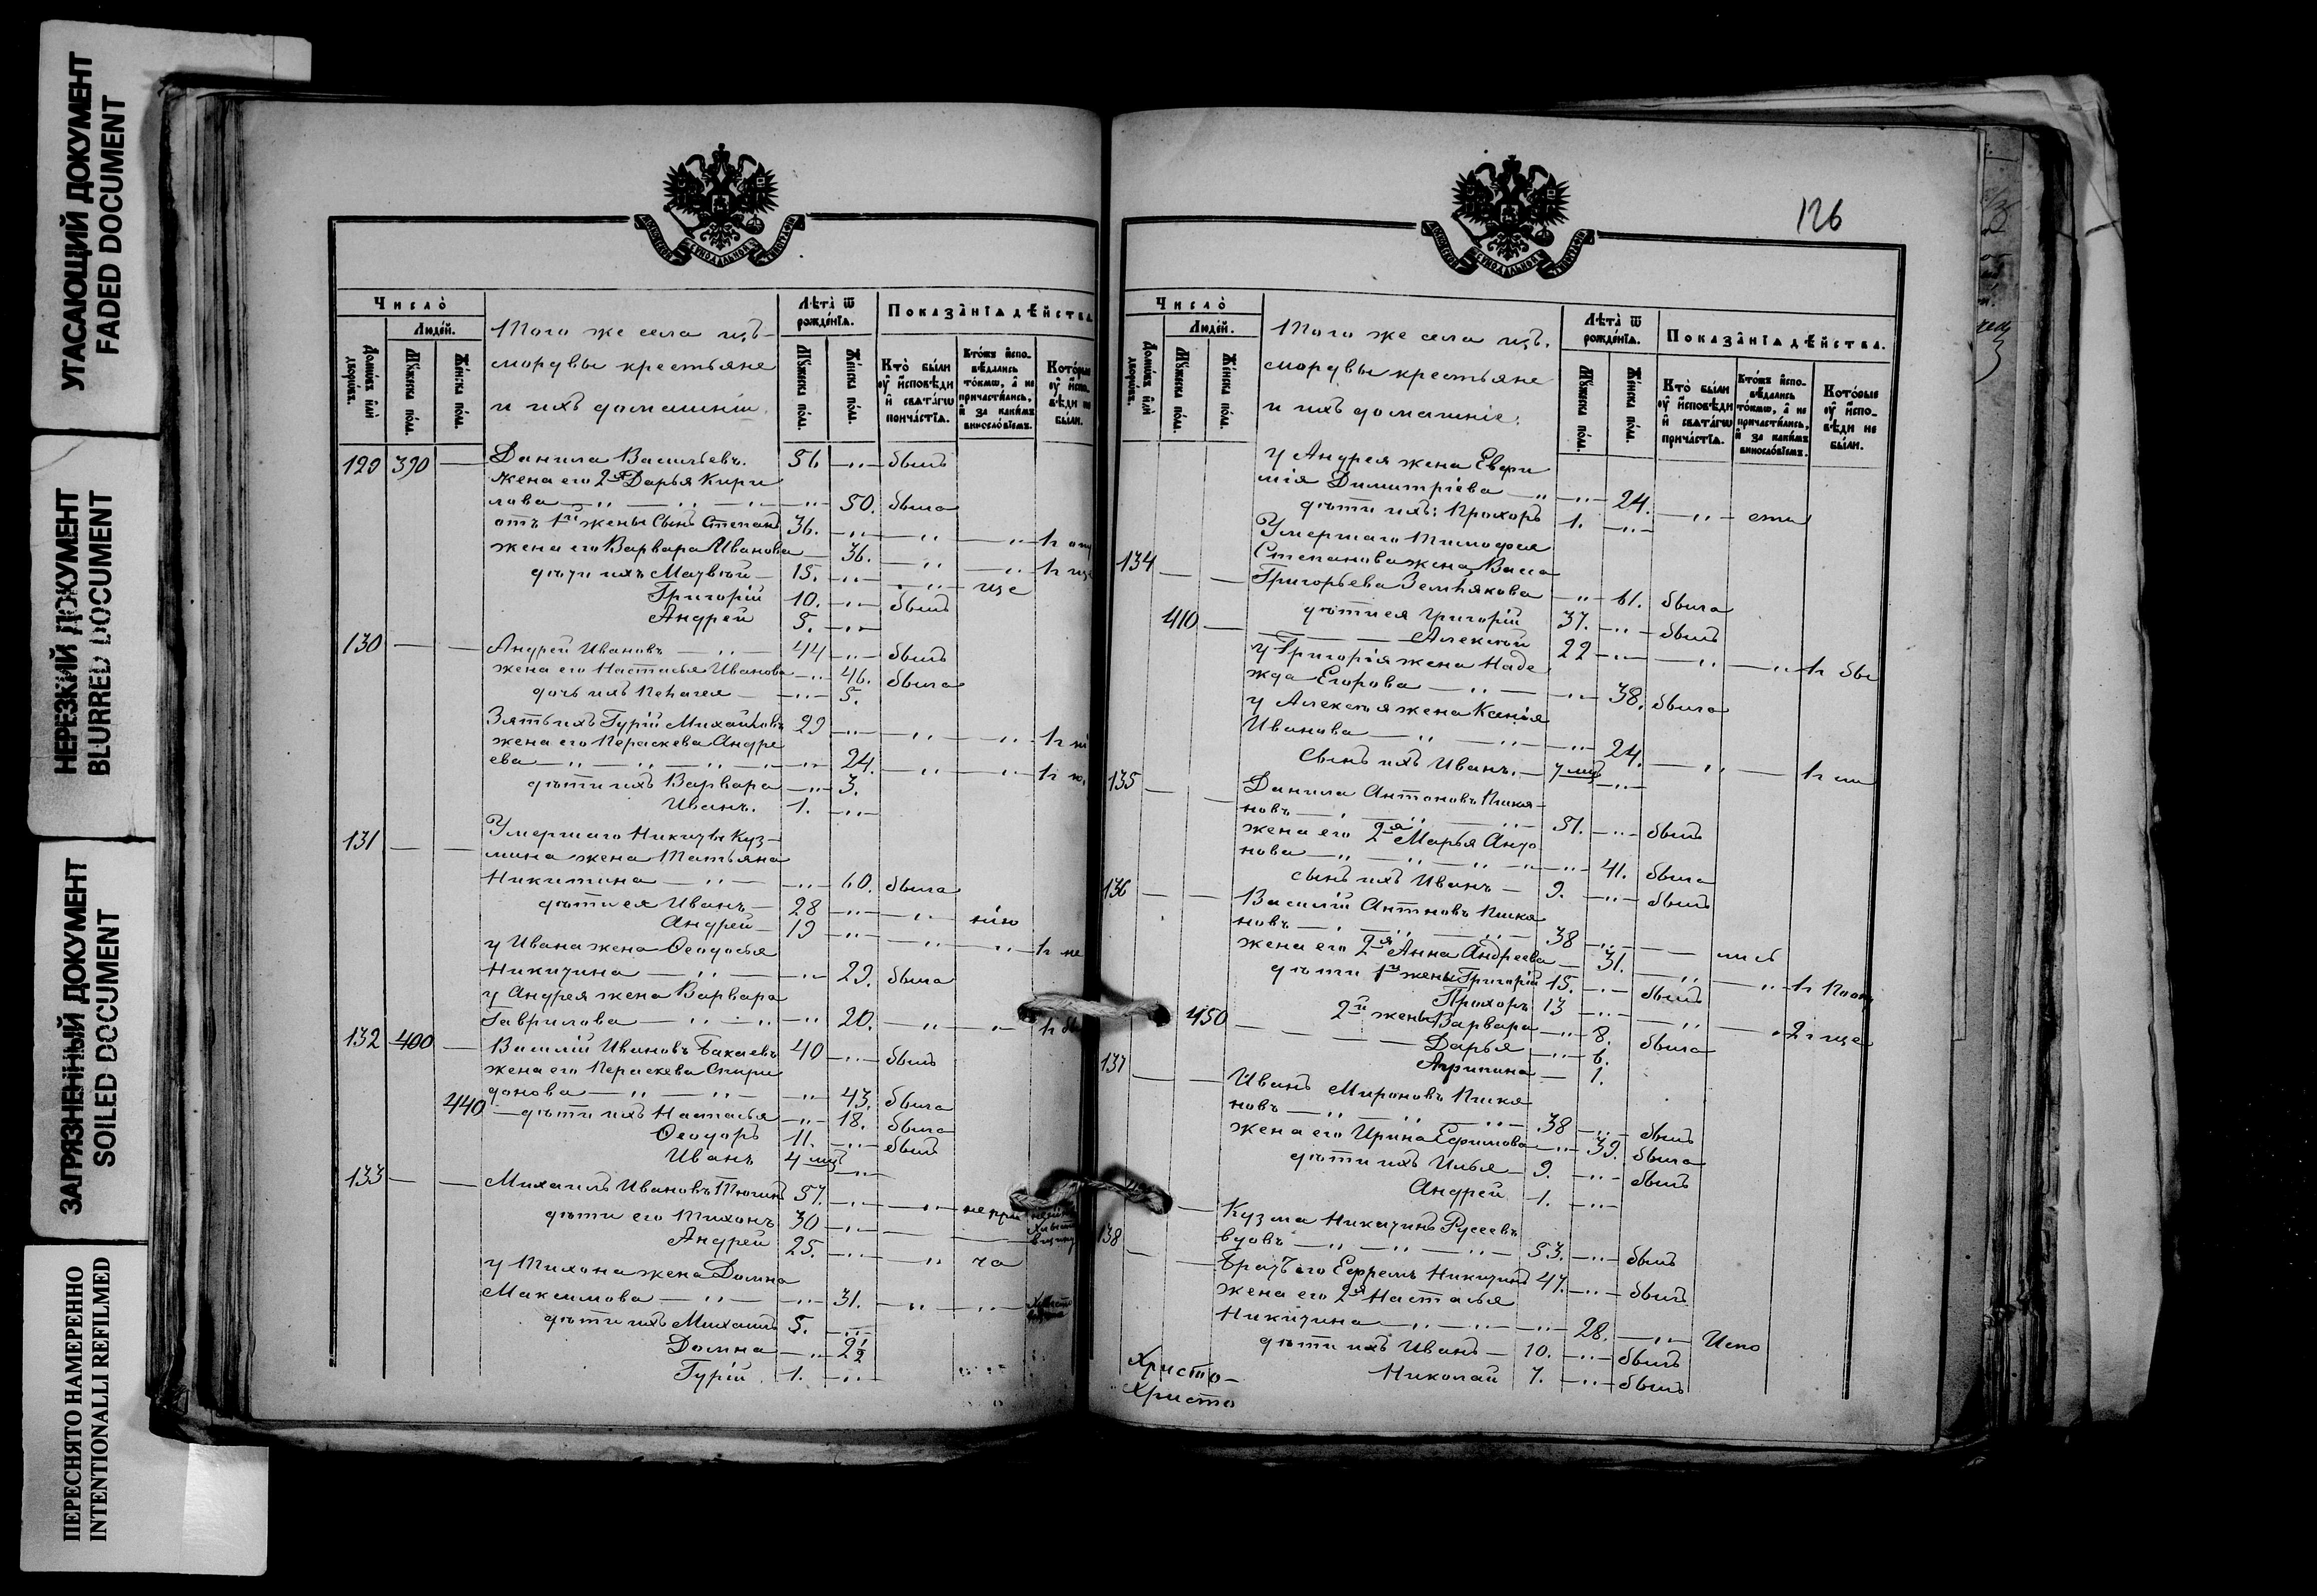 УГАСАЮЩИЙ ДОКУМЕНТ
FADED DOCUMENT
НЕРЕЗКИЙ ДОКУМЕНТ
BLURRED DOCUMENT
ЗАГРЯЗНЕННЫЙ ДОКУМЕНТ
SOILED DOCUMENT
ПЕРЕСНЯТО НАМЕРЕННО
INTENTIONALLI REFILMED
Число
Людей.
Домовъ или дворовъ.
Мужеска пола.
Женска пола.
Того же села изъ
мордвы крестьяне
и ихъ домашніи.
Лѣта ѿ рожденїѧ.
Мужеска пола.
Женска пола.
Показанїѧ дѣйства
Кто были у исповѣди и свѧтагѡ причастїѧ.
Ктожъ исповѣдались токмѡ, а не причастились, и за какимъ винословїемъ.
Которые у исповѣди не были.
129 390 — Данила Васильевъ. 56 былъ
жена его 2я Дарья Кири
лова 50. была
отъ 1й жены сынъ Степанъ 36.
жена его Варвара Иванова 36.
дѣти ихъ Матвѣй 15.
Григорій 10. былъ
Андрей 5.
130 — — Андрей Ивановъ 44 былъ
жена его Настасья Иванова 46. была
дочь ихъ Пелагея 5.
Зять ихъ Гурій Михайловъ 29
жена его Пераскева Андре
ева 24.
дѣти ихъ Варвара 3.
Иванъ. 1.
131 — — Умершаго Никиты Куз-
мина жена Татьяна
Никитина 60. была
дѣти ея Иванъ 28
Андрей 19
у Ивана жена Ѳеодосья
Никитина 29. была
у Андрея жена Варвара
Гаврилова 20.
132 400 — Василій Ивановъ Бакаевъ 40 былъ
жена его Пераскева Спири
донова 43. была
440 — дѣти ихъ Настасья 18. была
Ѳеодоръ 11. былъ
Иванъ 4 мц
133 — — Михаилъ Ивановъ Тюгинъ 57.
дѣти его Тихонъ 30
Андрей 25.
у Тихона жена Домна
Максимова 31.
дѣти ихъ Михаилъ 5.
Домна 2½
Гурій 1.
126
Число
Людей.
Домовъ или дворовъ.
Мужеска пола.
Женска пола.
Того же села изъ
мордвы крестьяне
и ихъ домашніе.
Лѣта ѿ рожденїѧ.
Мужеска пола.
Женска пола.
Показанїѧ дѣйства.
Кто были у исповѣди и свѧтагѡ причастїѧ.
Ктожъ исповѣдались токмѡ, а не причастились, и за какимъ винословїемъ.
Которые у исповѣди не были.
у Андрея жена Евѳи
мія Димитріева 24.
дѣти ихъ: Прохоръ 1.
134 Умершаго Тимоѳея
Степанова жена Васса
Григорьева Землякова 61. была
410 — дѣти ея Григорій 37. былъ
Алексѣй 22
у Григорія жена Наде
жда Егорова 38. была
у Алексѣя жена Ксенія
Иванова 24.
сынъ ихъ Иванъ. 7 мц
135 — — Данила Антоновъ Пикя-
новъ 51. былъ
жена его 2я Марья Анто
нова 41. была
сынъ ихъ Иванъ 9. былъ
136 — — Василій Антновъ Пикя
новъ 38
жена его 2я Анна Андреева 31.
дѣти 1й жены Григорій 15. былъ
Прохоръ 13
450 — 2й жены Варвара 8. была
Дарья 6.
Агрипина 1.
137 — — Иванъ Мироновъ Пикя
новъ 38 былъ
жена его Ирина Ефимова 39. была
дѣти ихъ Илья 9. былъ
Андрей 1.
138 — — Кузма Никитинъ Русеевъ
вдовъ 53. былъ
Братъ его Ефремъ Никитинъ 47. былъ
жена его 2я Настасья
Никитина 28.
дѣти ихъ Иванъ 10. былъ
Николай 7. былъ
Христо-
Христо